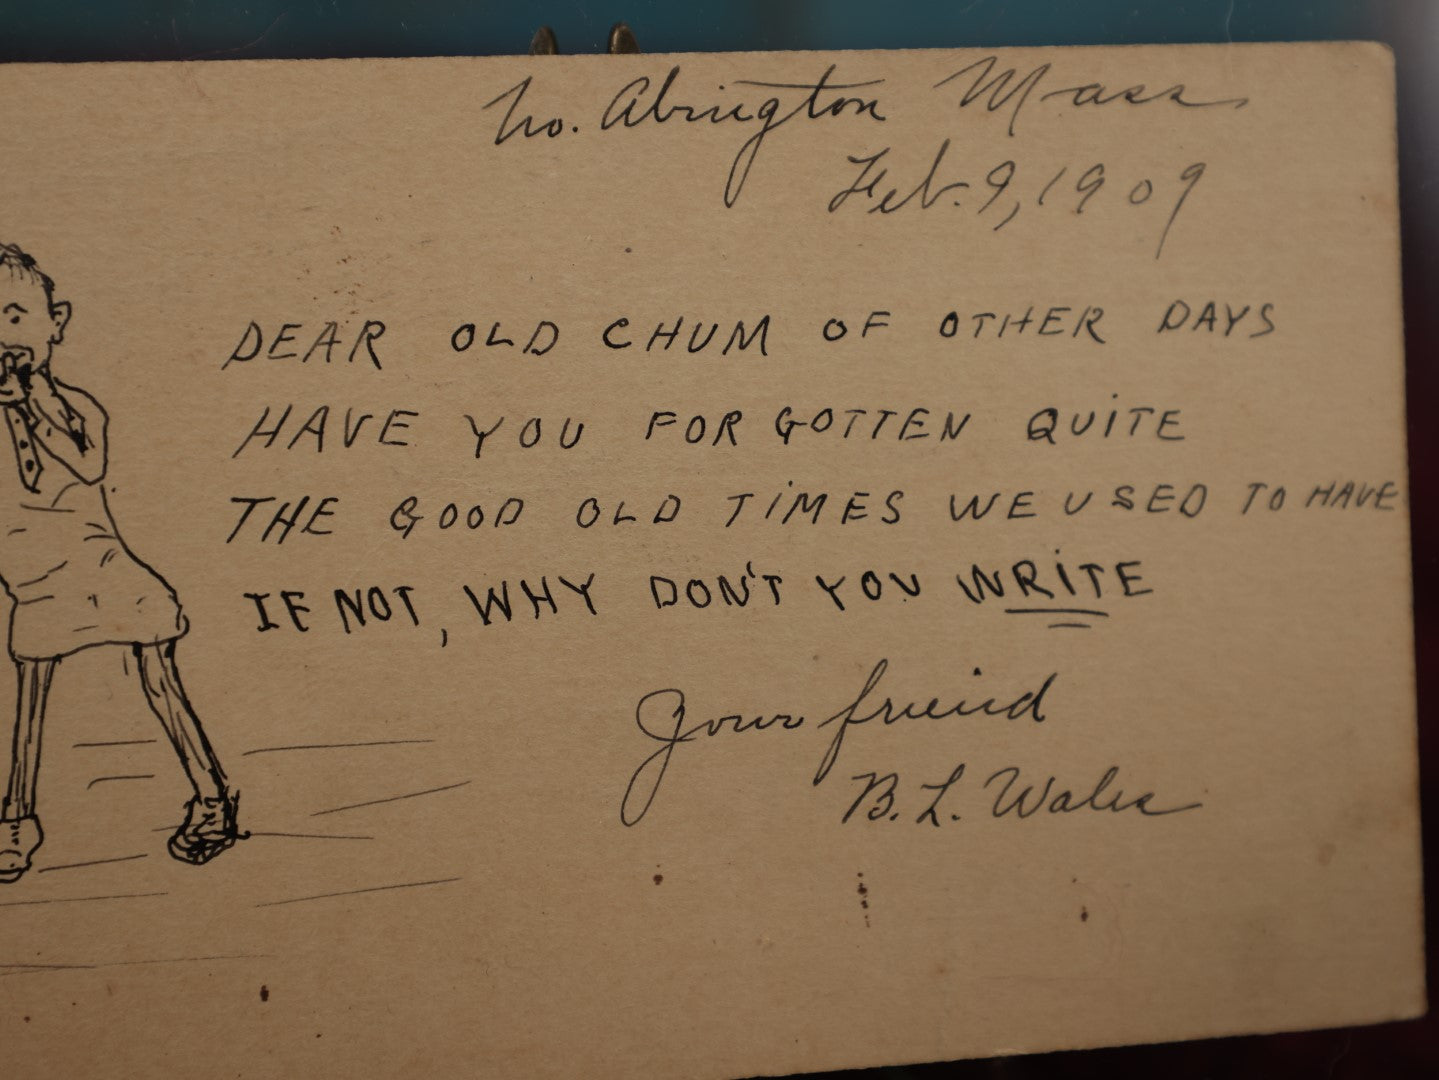 No. Abington Mass
Feb. 9, 1909
DEAR OLD CHUM OF OTHER DAYS
HAVE YOU FORGOTTEN QUITE
THE GOOD OLD TIMES WE USED TO HAVE
IF NOT, WHY DON'T YOU WRITE
Your friend
B. L. Wales